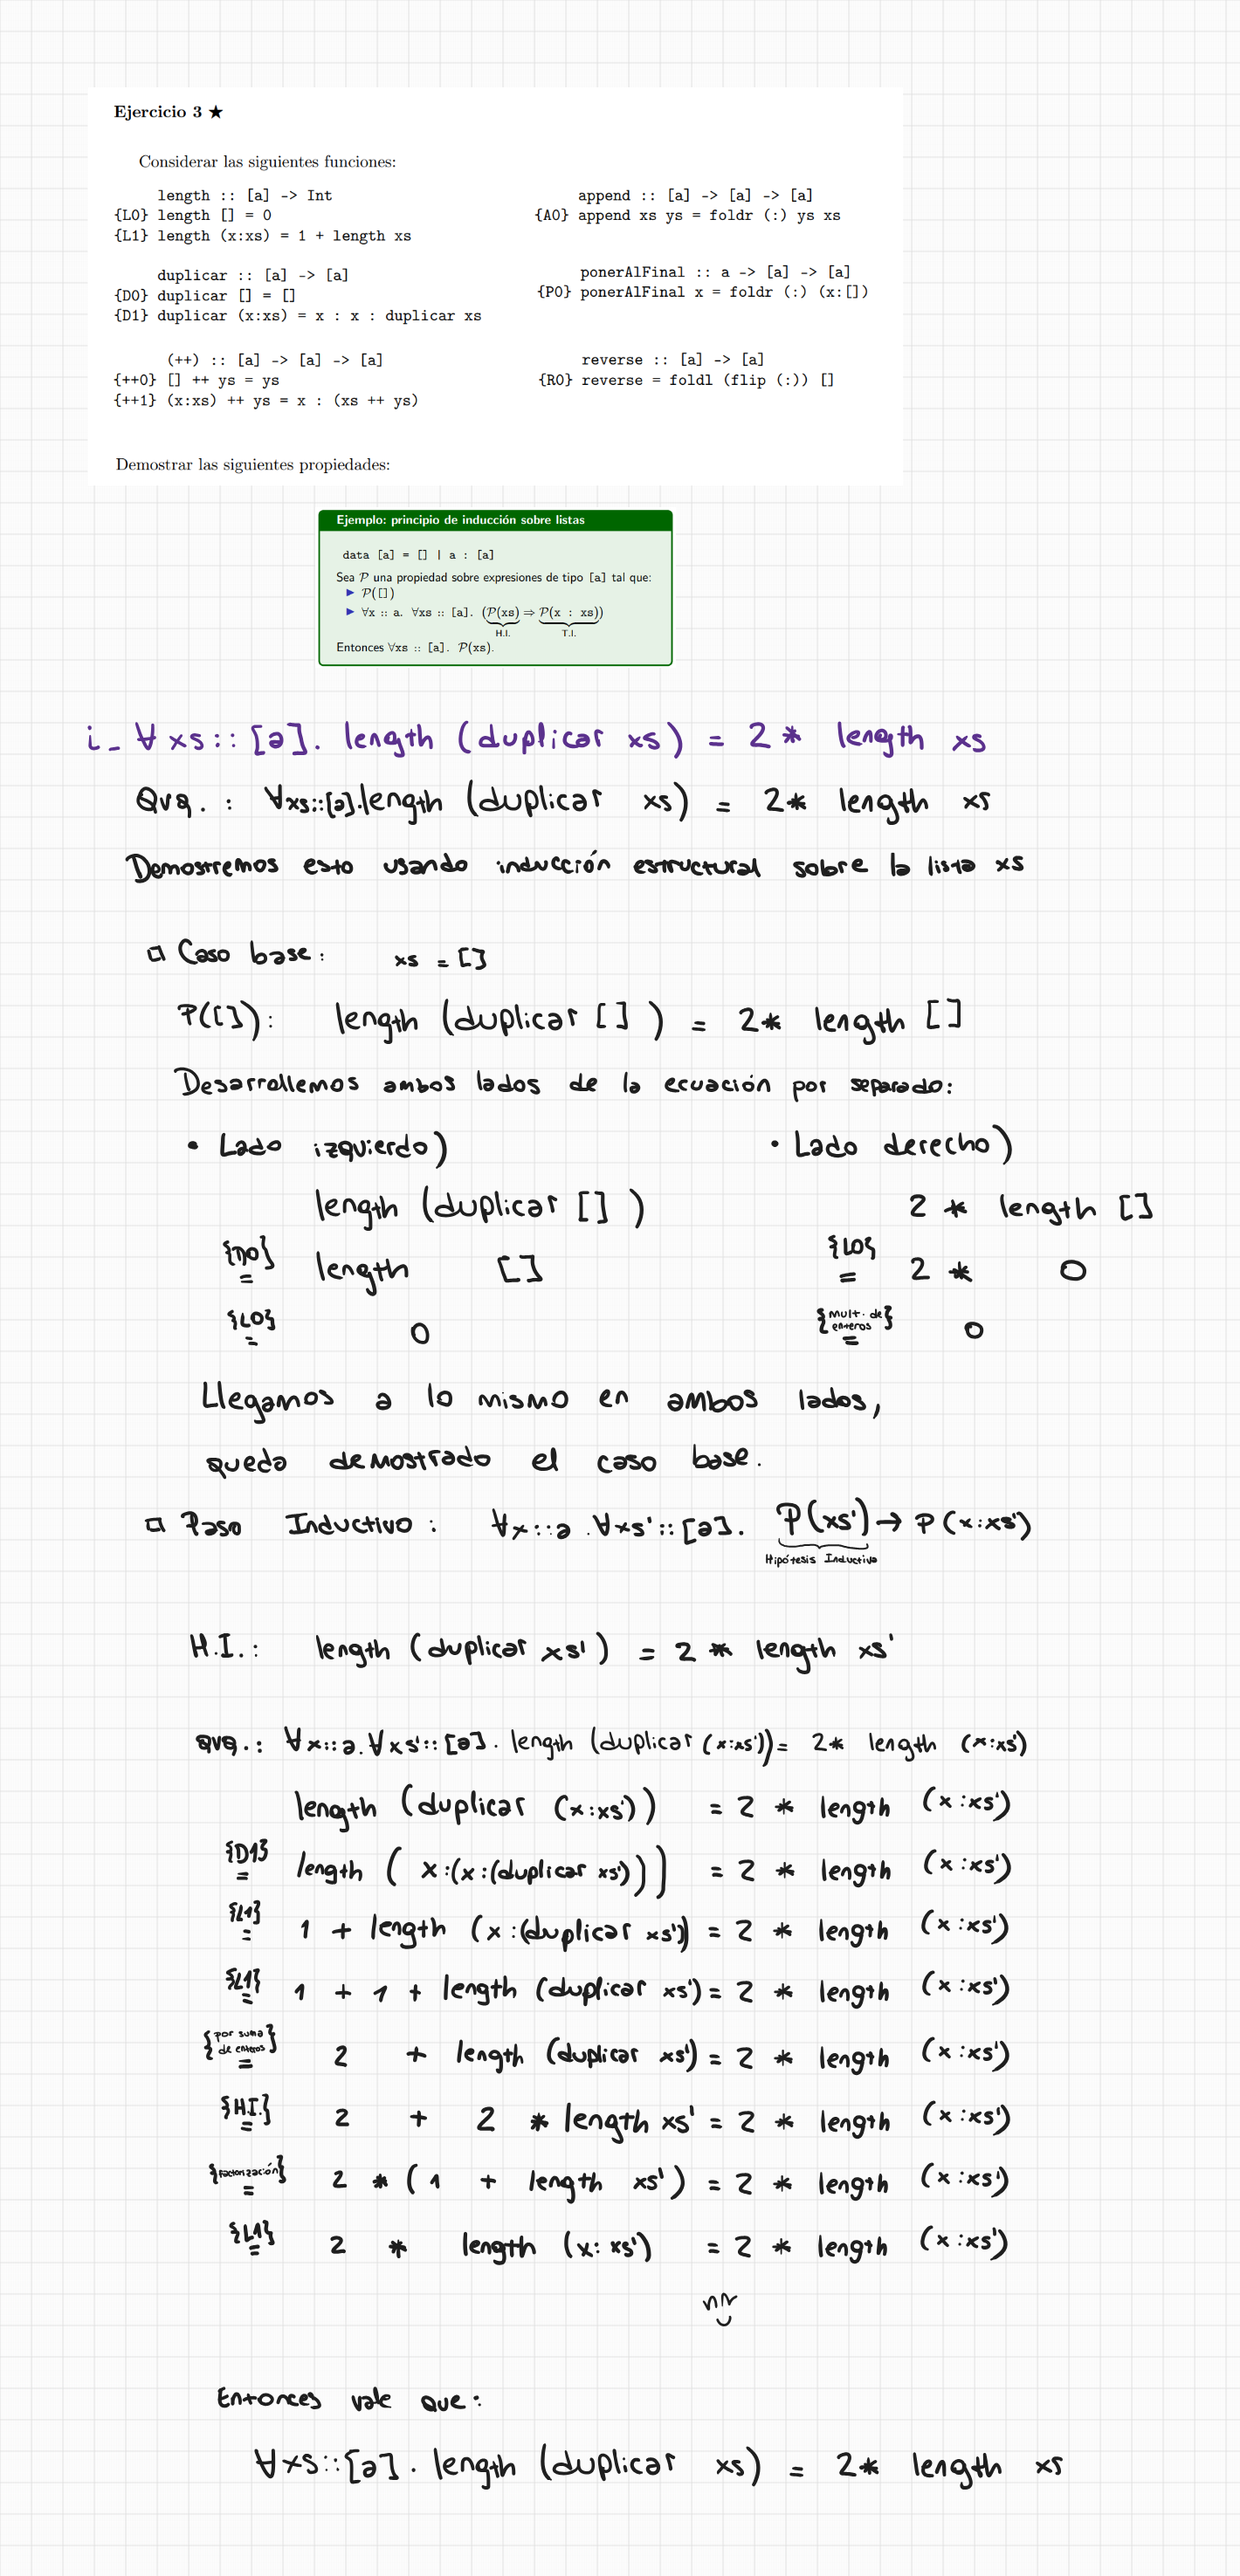 Ejercicio 3 ★
Considerar las siguientes funciones:
length :: [a] -> Int
{L0} length [] = 0
{L1} length (x:xs) = 1 + length xs
append :: [a] -> [a] -> [a]
{A0} append xs ys = foldr (:) ys xs
duplicar :: [a] -> [a]
{D0} duplicar [] = []
{D1} duplicar (x:xs) = x : x : duplicar xs
ponerAlFinal :: a -> [a] -> [a]
{P0} ponerAlFinal x = foldr (:) (x:[])
(++) :: [a] -> [a] -> [a]
{++0} [] ++ ys = ys
{++1} (x:xs) ++ ys = x : (xs ++ ys)
reverse :: [a] -> [a]
{R0} reverse = foldl (flip (:)) []
Demostrar las siguientes propiedades:
Ejemplo: principio de inducción sobre listas
data [a] = [] | a : [a]
Sea P una propiedad sobre expresiones de tipo [a] tal que:
▶ P([])
▶ ∀x :: a. ∀xs :: [a]. (P(xs) ⇒ P(x : xs))
H.I. T.I.
Entonces ∀xs :: [a]. P(xs).
i_ ∀ xs :: [a]. length (duplicar xs) = 2 * length xs
Qvq. : ∀xs::[a].length (duplicar xs) = 2* length xs
Demostremos esto usando inducción estructural sobre la lista xs
□ Caso base: xs = []
P([]): length (duplicar [] ) = 2* length []
Desarrollemos ambos lados de la ecuación por separado:
• Lado izquierdo)
length (duplicar [] )
{D0} = length []
{L0} = 0
• Lado derecho)
2 * length []
{L0} = 2 * 0
{mult. de enteros} = 0
Llegamos a lo mismo en ambos lados,
queda demostrado el caso base.
□ Paso Inductivo : ∀x::a .∀xs'::[a]. P(xs') → P(x:xs')
Hipótesis Inductiva
H.I.: length (duplicar xs') = 2 * length xs'
qvq.: ∀x::a.∀xs'::[a]. length (duplicar (x:xs')) = 2* length (x:xs')
length (duplicar (x:xs')) = 2 * length (x:xs')
{D1} = length ( x:(x:(duplicar xs'))) = 2 * length (x:xs')
{L1} = 1 + length (x:(duplicar xs')) = 2 * length (x:xs')
{L1} = 1 + 1 + length (duplicar xs') = 2 * length (x:xs')
{por suma de enteros} = 2 + length (duplicar xs') = 2 * length (x:xs')
{H.I.} = 2 + 2 * length xs' = 2 * length (x:xs')
{factorización} = 2 * (1 + length xs') = 2 * length (x:xs')
{L1} = 2 * length (x:xs') = 2 * length (x:xs')
Entonces vale que:
∀xs::[a]. length (duplicar xs) = 2* length xs